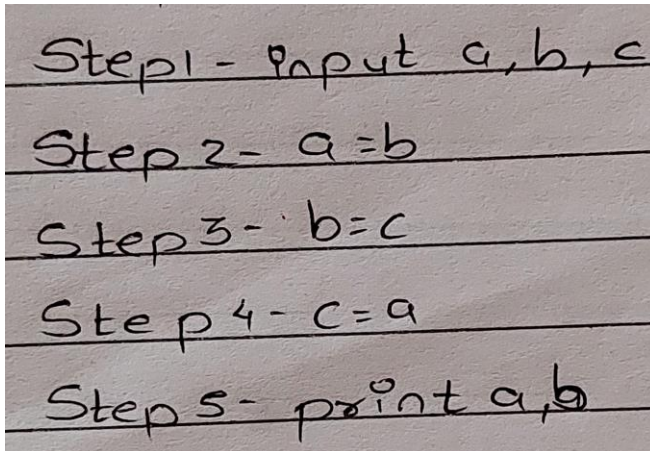 Step1- input a, b, c
Step 2- a=b
Step3- b=c
Step 4- c=a
Step 5- print a,b